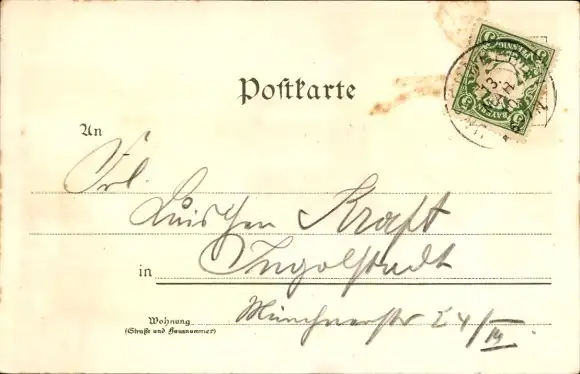 Postkarte
An
Frl.
Luischen Kraft
in Ingolstadt
Wohnung
(Straße und Hausnummer)
Münchnerstr 24/III
BAYERN
PFENNIG
5